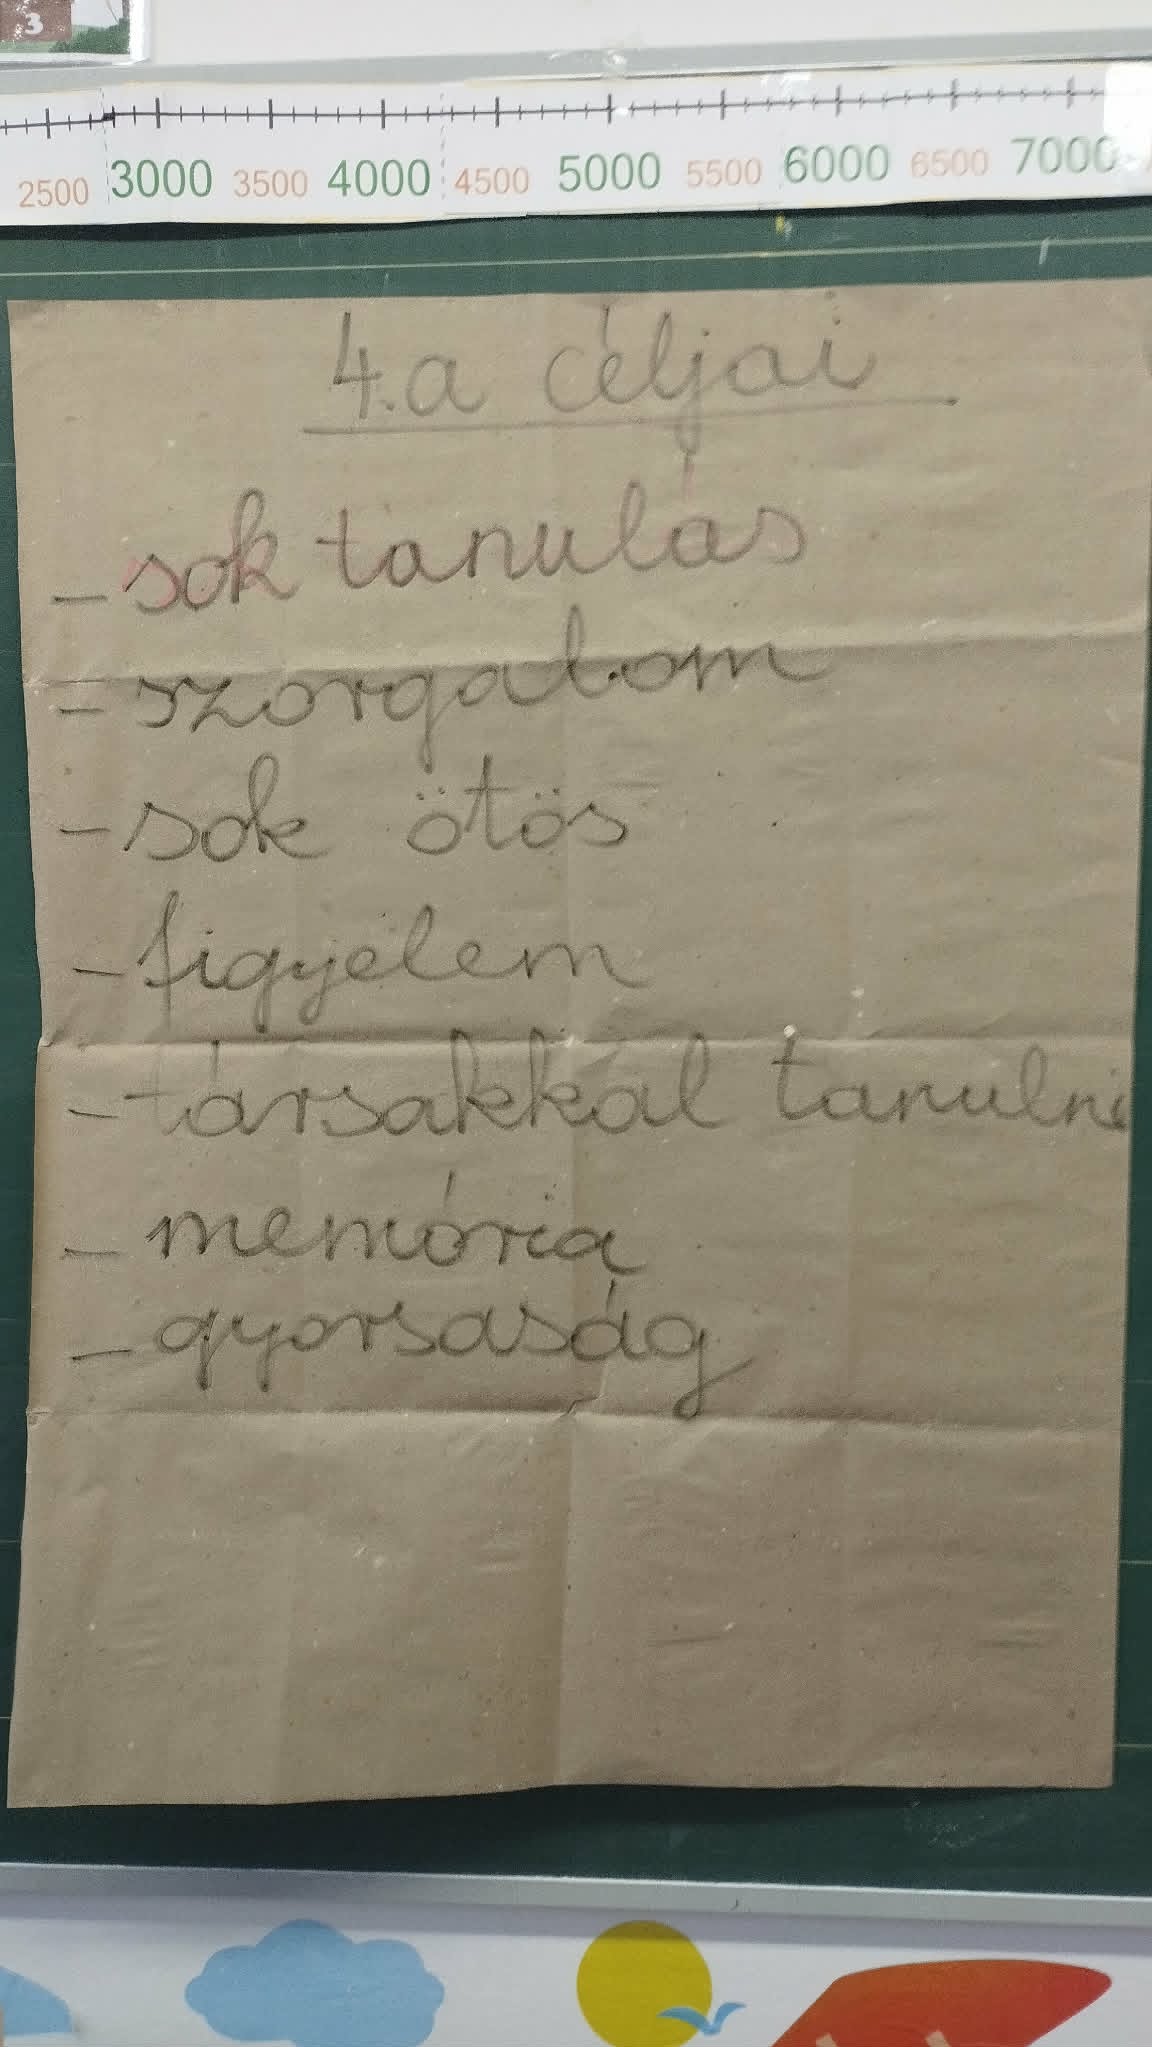 3
2500 3000 3500 4000 4500 5000 5500 6000 6500 7000
4.a céljai
- sok tanulás
- szorgalom
- sok ötös
- figyelem
- társakkal tanulni
- memória
- gyorsaság